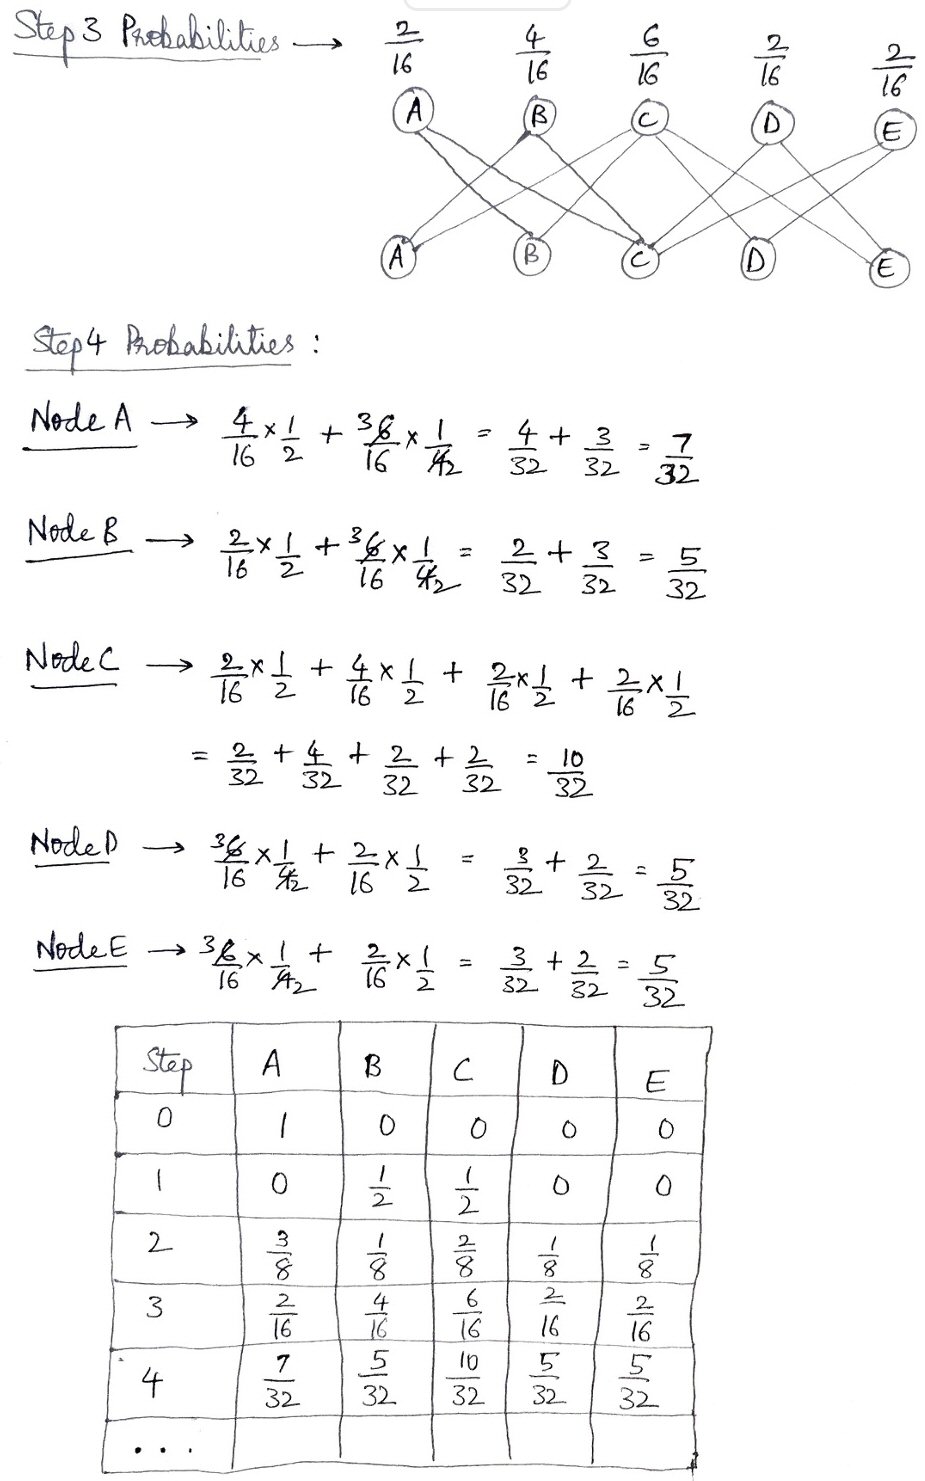 Step 3 Probabilities → 2/16 4/16 6/16 2/16 2/16
A B C D E
A B C D E
Step 4 Probabilities :
Node A → 4/16 × 1/2 + 3 6/16 × 1/4 2 = 4/32 + 3/32 = 7/32
Node B → 2/16 × 1/2 + 3 6/16 × 1/4 2 = 2/32 + 3/32 = 5/32
Node C → 2/16 × 1/2 + 4/16 × 1/2 + 2/16 × 1/2 + 2/16 × 1/2
= 2/32 + 4/32 + 2/32 + 2/32 = 10/32
Node D → 3 6/16 × 1/4 2 + 2/16 × 1/2 = 3/32 + 2/32 = 5/32
Node E → 3 6/16 × 1/4 2 + 2/16 × 1/2 = 3/32 + 2/32 = 5/32
Step A B C D E
0 1 0 0 0 0
1 0 1/2 1/2 0 0
2 3/8 1/8 2/8 1/8 1/8
3 2/16 4/16 6/16 2/16 2/16
4 7/32 5/32 10/32 5/32 5/32
...